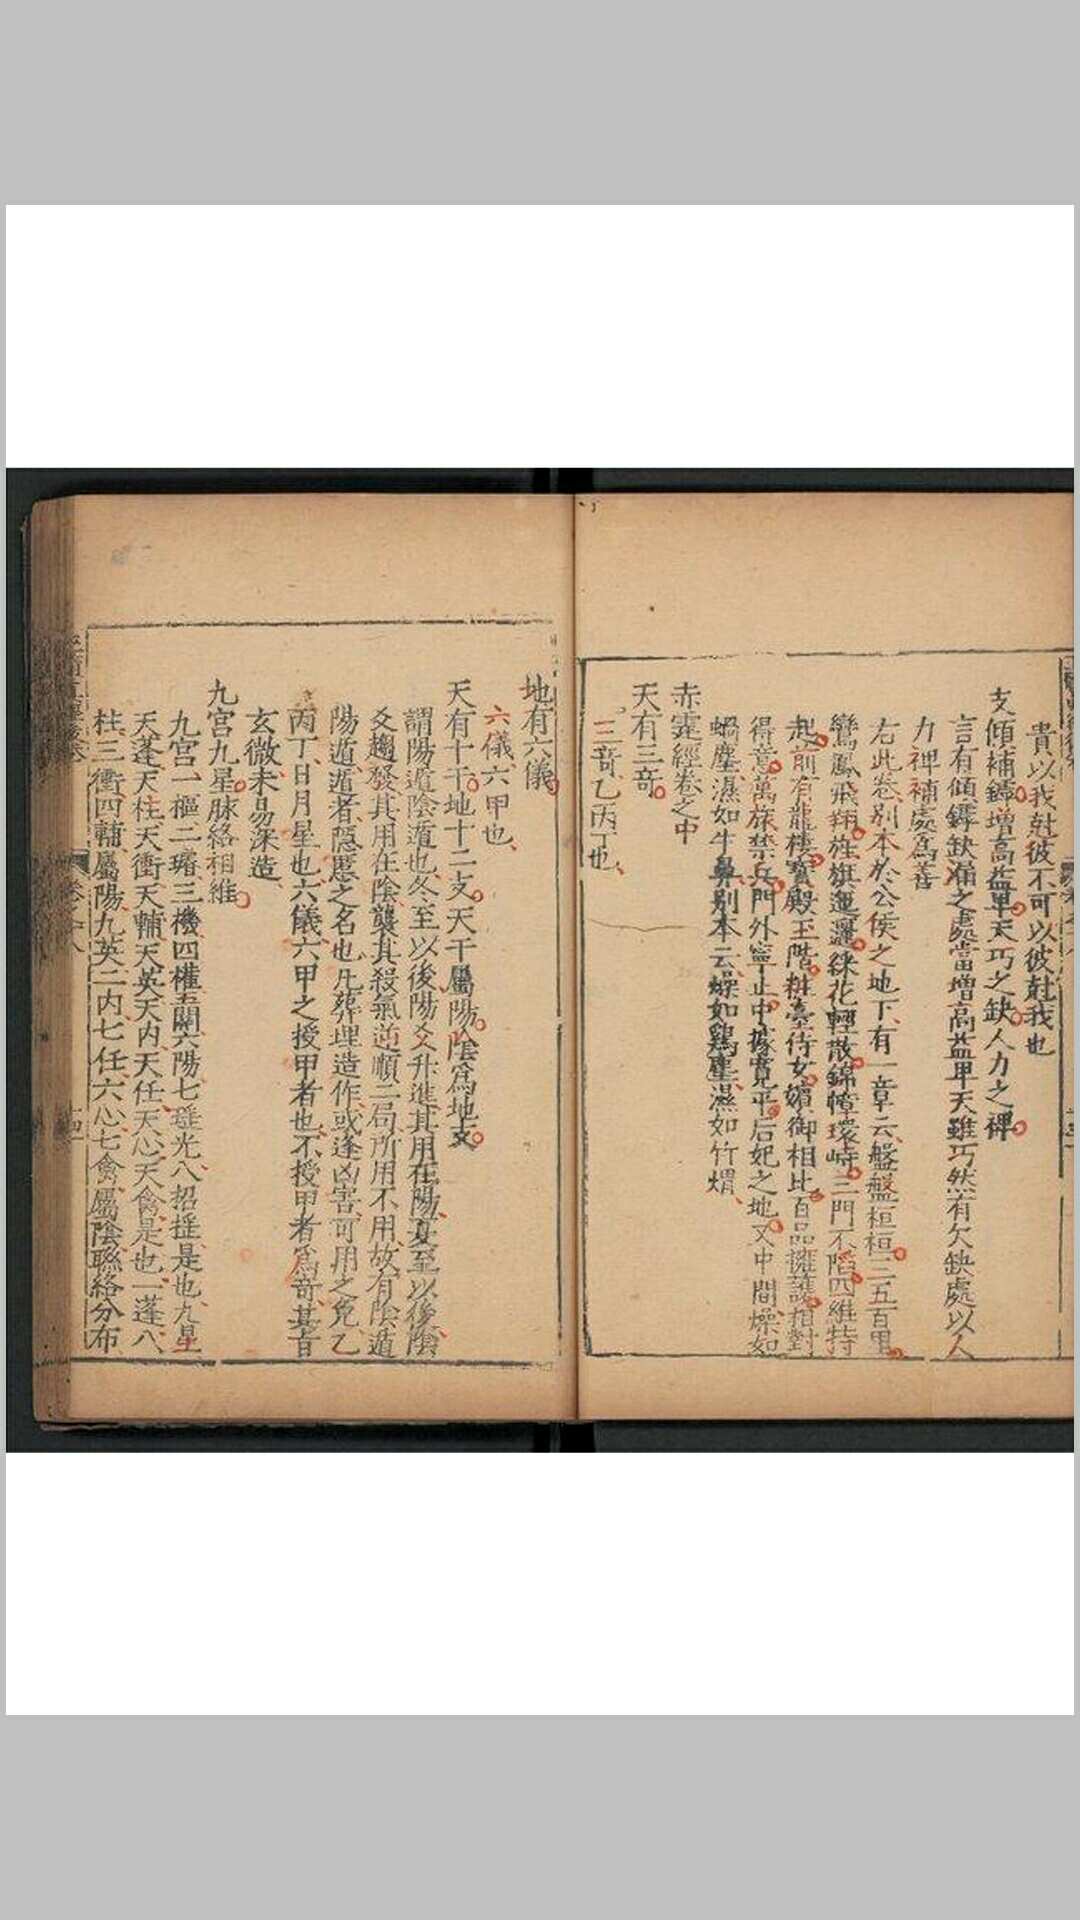 貴以我尅彼不可以彼尅我也
支傾補鏬增高益卑天巧之缺人力之裨
言有傾鏬缺漏之處當增高益卑天雖巧然有欠缺處以人
力裨補處爲善
右此卷別本於公侯之地下有一章云盤盤桓桓三五百里
鸞鳳飛翔旌旗迤邐綵花輕散錦幛環峙三門不陷四維特
起前有龍樓寶殿玉階 臺侍女媚御相比百品擁護相對
得意萬旅禁兵門外寧止中據寬平后妃之地又中間燥如
蝸塵濕如牛鼻別本云燥如鷄塵濕如竹熠
赤霆經卷之中
天有三奇
三奇乙丙丁也
地有六儀
六儀六甲也
天有十干地十二支天干屬陽陰爲地支
謂陽遁陰遁也冬至以後陽爻升進其用在陽夏至以後陰
爻趨發其用在陰襲其殺氣逆順二局所用不用故有陰遁
陽遁遁者隱慝之名也凡葬埋造作或逢凶害可用之免乙
丙丁日月星也六儀六甲之授甲者也不授甲者爲奇其旨
玄微未易深造
九宮九星脉絡相維
九宮一樞二璿三機四權五闓六陽七瑤光八招揺是也九星
天蓬天柱天衝天輔天英天內天任天心天禽是也一蓬八
柱三衝四輔屬陽九英二內七任六心七禽屬陰聯絡分布